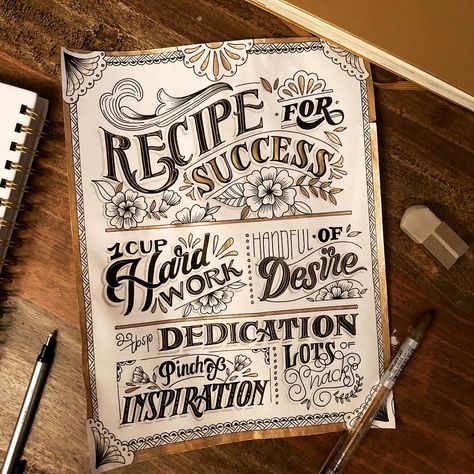 RECIPE FOR
SUCCESS
1 CUP
Hard
WORK
HANDFUL OF
Desire
2 tbsp DEDICATION
Pinch of
INSPIRATION
LOTS OF
Snacks